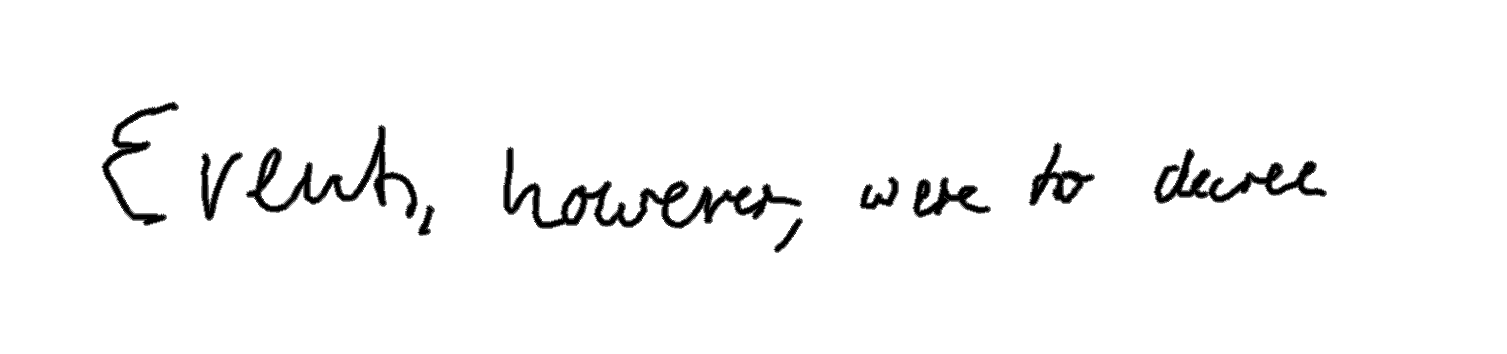 Events, however, were to decree